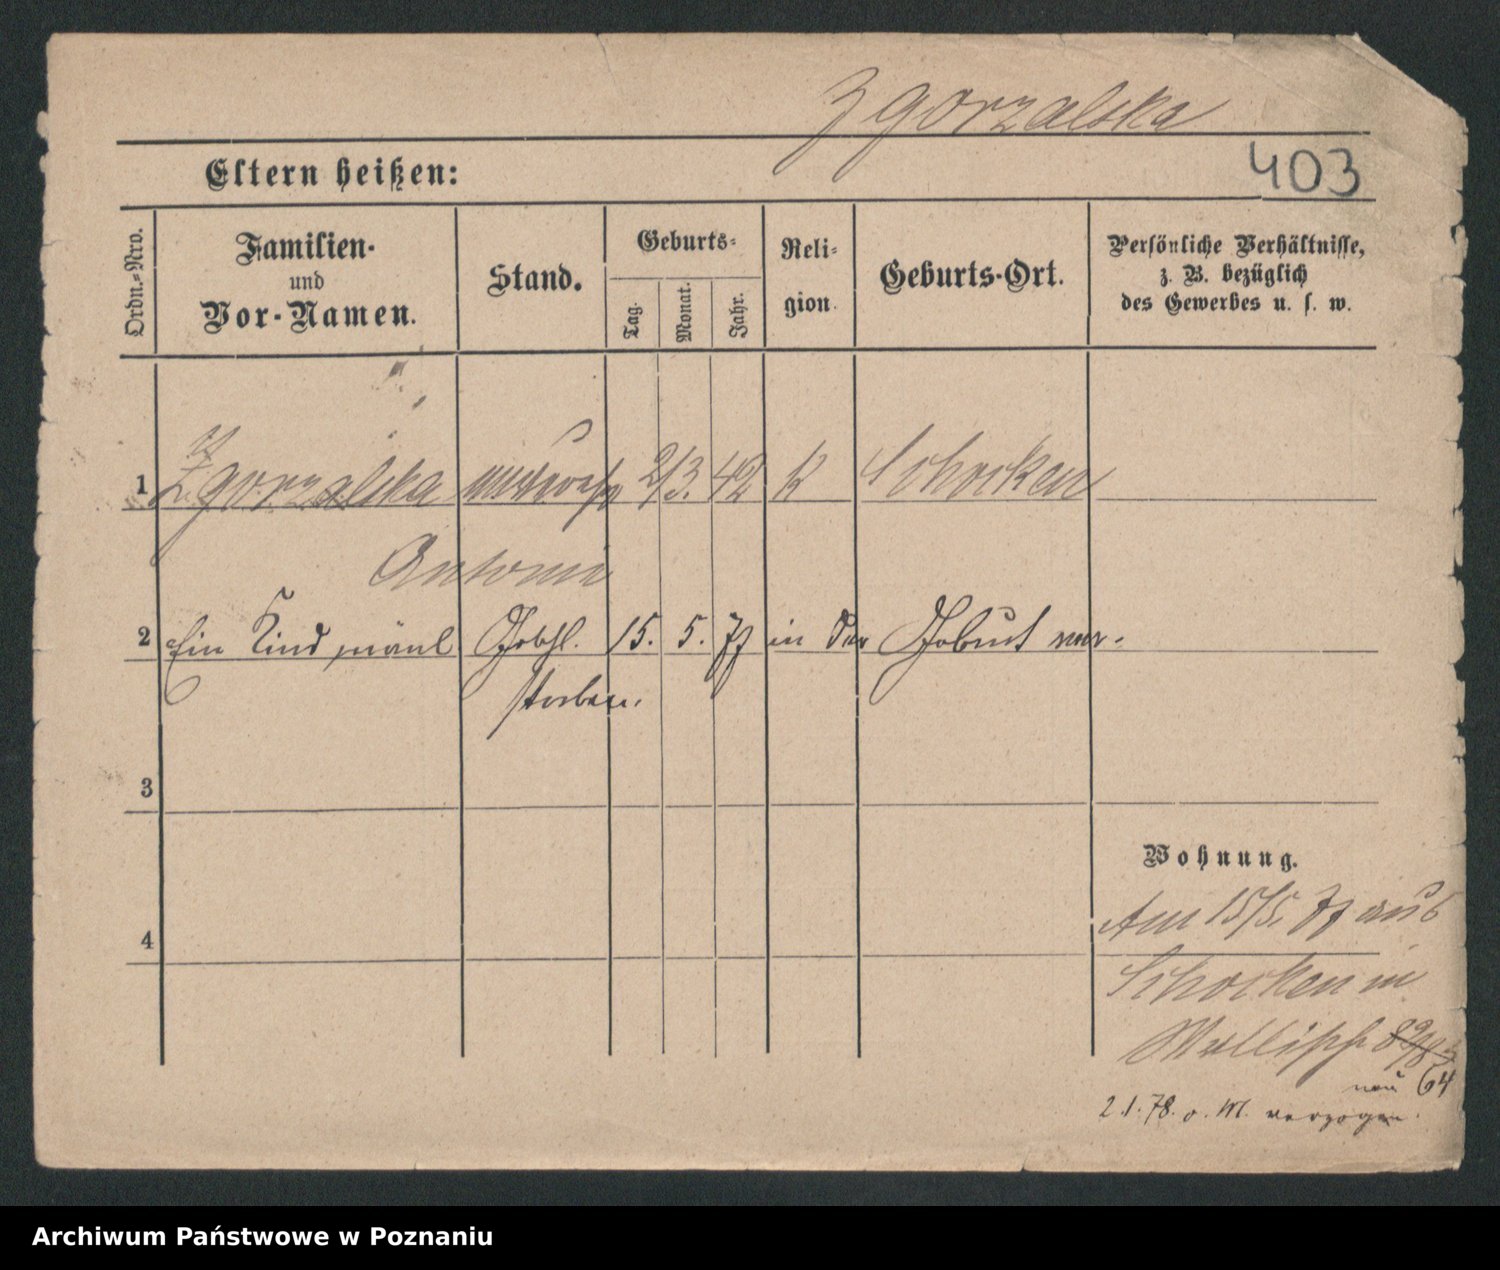 Zgorzalska
Eltern heißen:
403
Ordn.-Nro.
Familien-
und
Vor-Namen.
Stand.
Geburts-
Tag.
Monat.
Jahr.
Reli-
gion.
Geburts-Ort.
Persönliche Verhältnisse,
z. B. bezüglich
des Gewerbes u. s. w.
1 Zgorzalska 2/3. 42 k Schocken
Antonie
2 Ein Kind männl Geschl. 15. 5. 77 in der Geburt ver-
storben.
3
Wohnung.
4
Am 15/5. 77 aus
Schocken in
Wallischei
neu 64
2.1.78. o. M. verzogen.
Archiwum Państwowe w Poznaniu